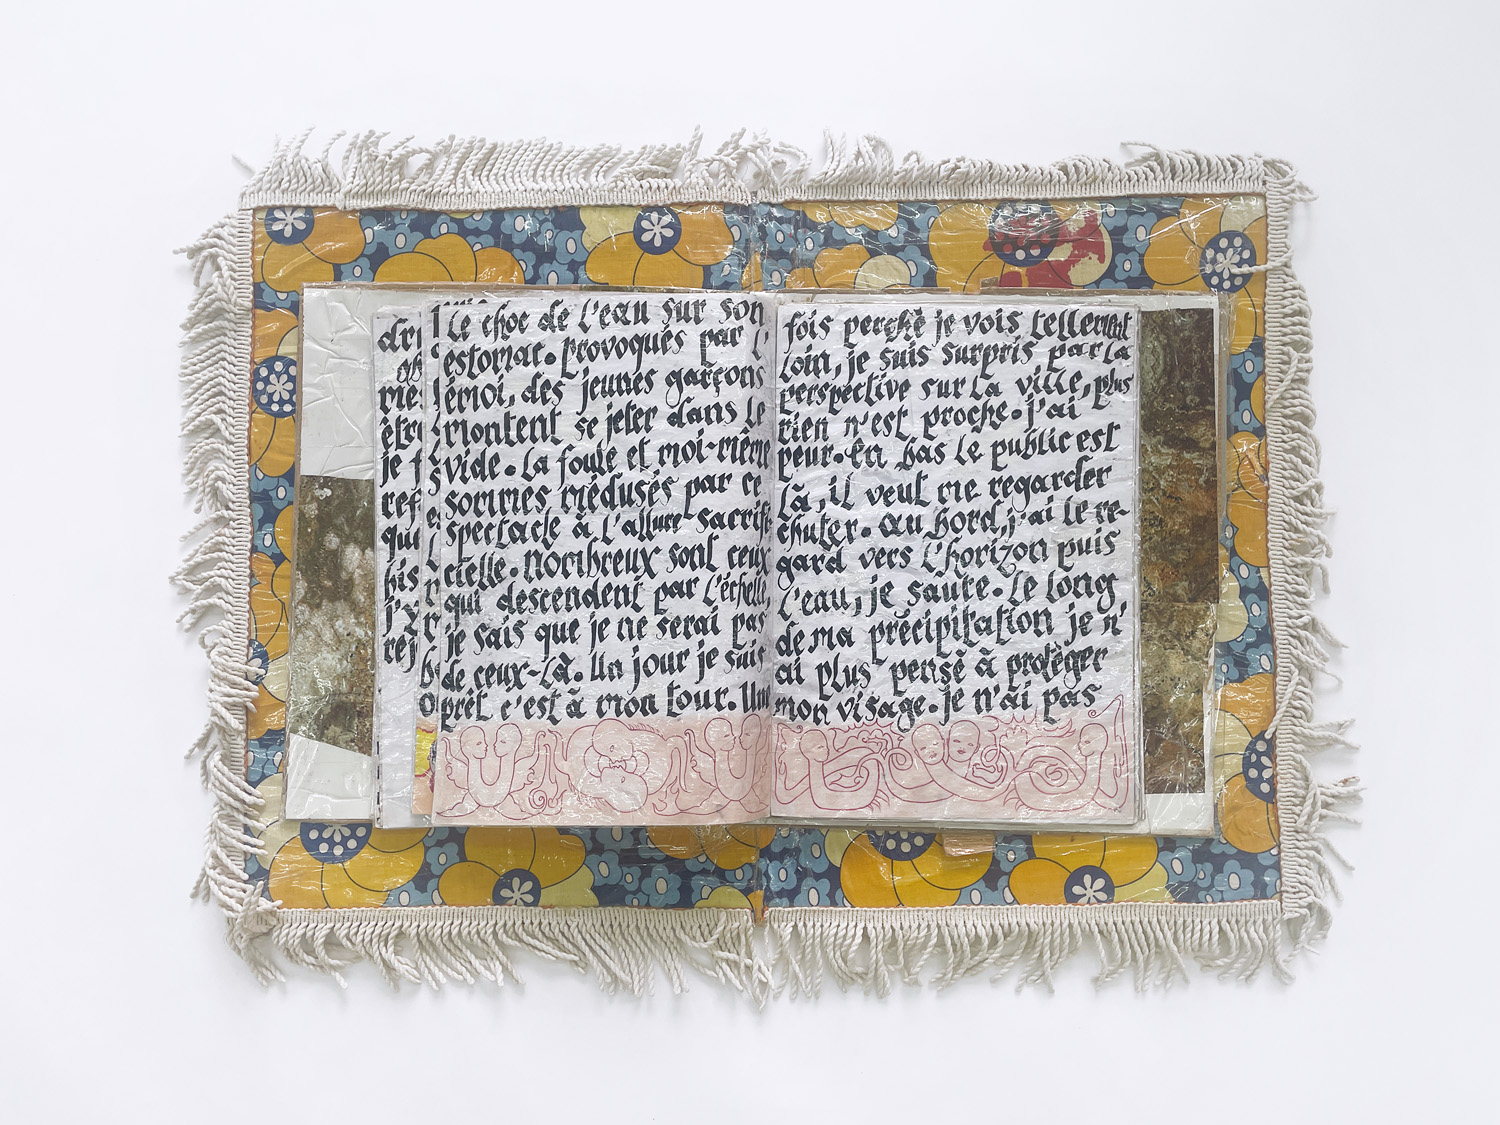 dry
gb
me
être
je f
ref
que
bis
j'y
rej
le choc de l'eau sur son
estomac. provoqués par l'
émoi, des jeunes garçons
montent se jeter dans le
vide. la foule et moi-même
sommes médusés par ce
spectacle à l'allure sacrifi-
cielle. nombreux sont ceux
qui descendent par l'échelle,
je sais que je ne serai pas
de ceux-là. un jour je suis
prêt c'est à mon tour. une
fois perché je vois tellement
loin, je suis surpris par la
perspective sur la ville, plus
rien n'est proche. j'ai
peur. en bas le public est
là, il veut me regarder
chuter. au bord, j'ai le re-
gard vers l'horizon puis
l'eau, je saute. le long
de ma précipitation je n'
ai plus pensé à protéger
mon visage. je n'ai pas